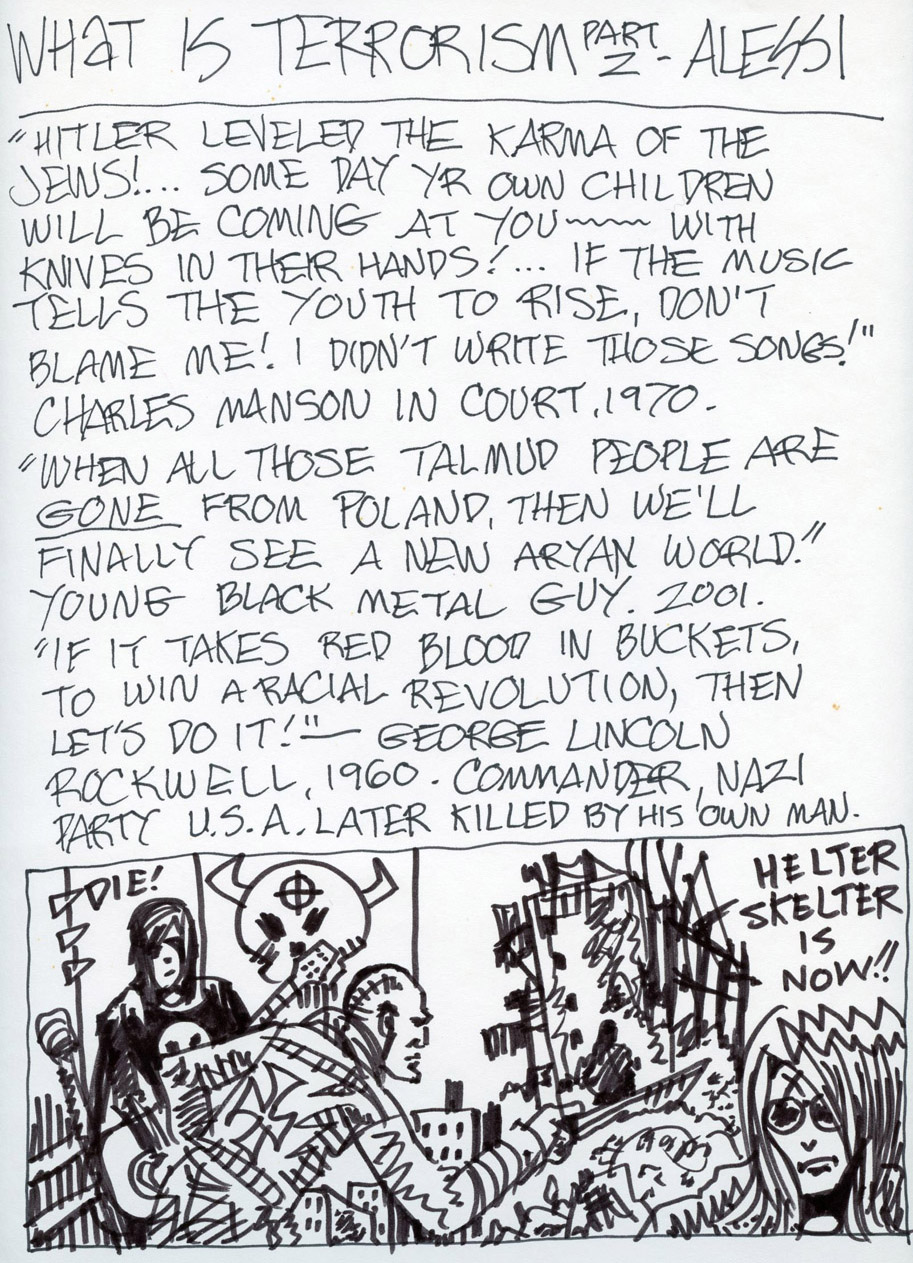 WHAT IS TERRORISM PART 2 - ALESSI
"HITLER LEVELED THE KARMA OF THE
JEWS!... SOME DAY YR OWN CHILDREN
WILL BE COMING AT YOU~~~~ WITH
KNIVES IN THEIR HANDS!... IF THE MUSIC
TELLS THE YOUTH TO RISE, DON'T
BLAME ME! I DIDN'T WRITE THOSE SONGS!"
CHARLES MANSON IN COURT, 1970.
"WHEN ALL THOSE TALMUD PEOPLE ARE
GONE FROM POLAND, THEN WE'LL
FINALLY SEE A NEW ARYAN WORLD."
YOUNG BLACK METAL GUY. 2001.
"IF IT TAKES RED BLOOD IN BUCKETS,
TO WIN A RACIAL REVOLUTION, THEN
LET'S DO IT!"— GEORGE LINCOLN
ROCKWELL, 1960. COMMANDER, NAZI
PARTY U.S.A. LATER KILLED BY HIS OWN MAN.
DIE!
HELTER
SKELTER
IS
NOW!!